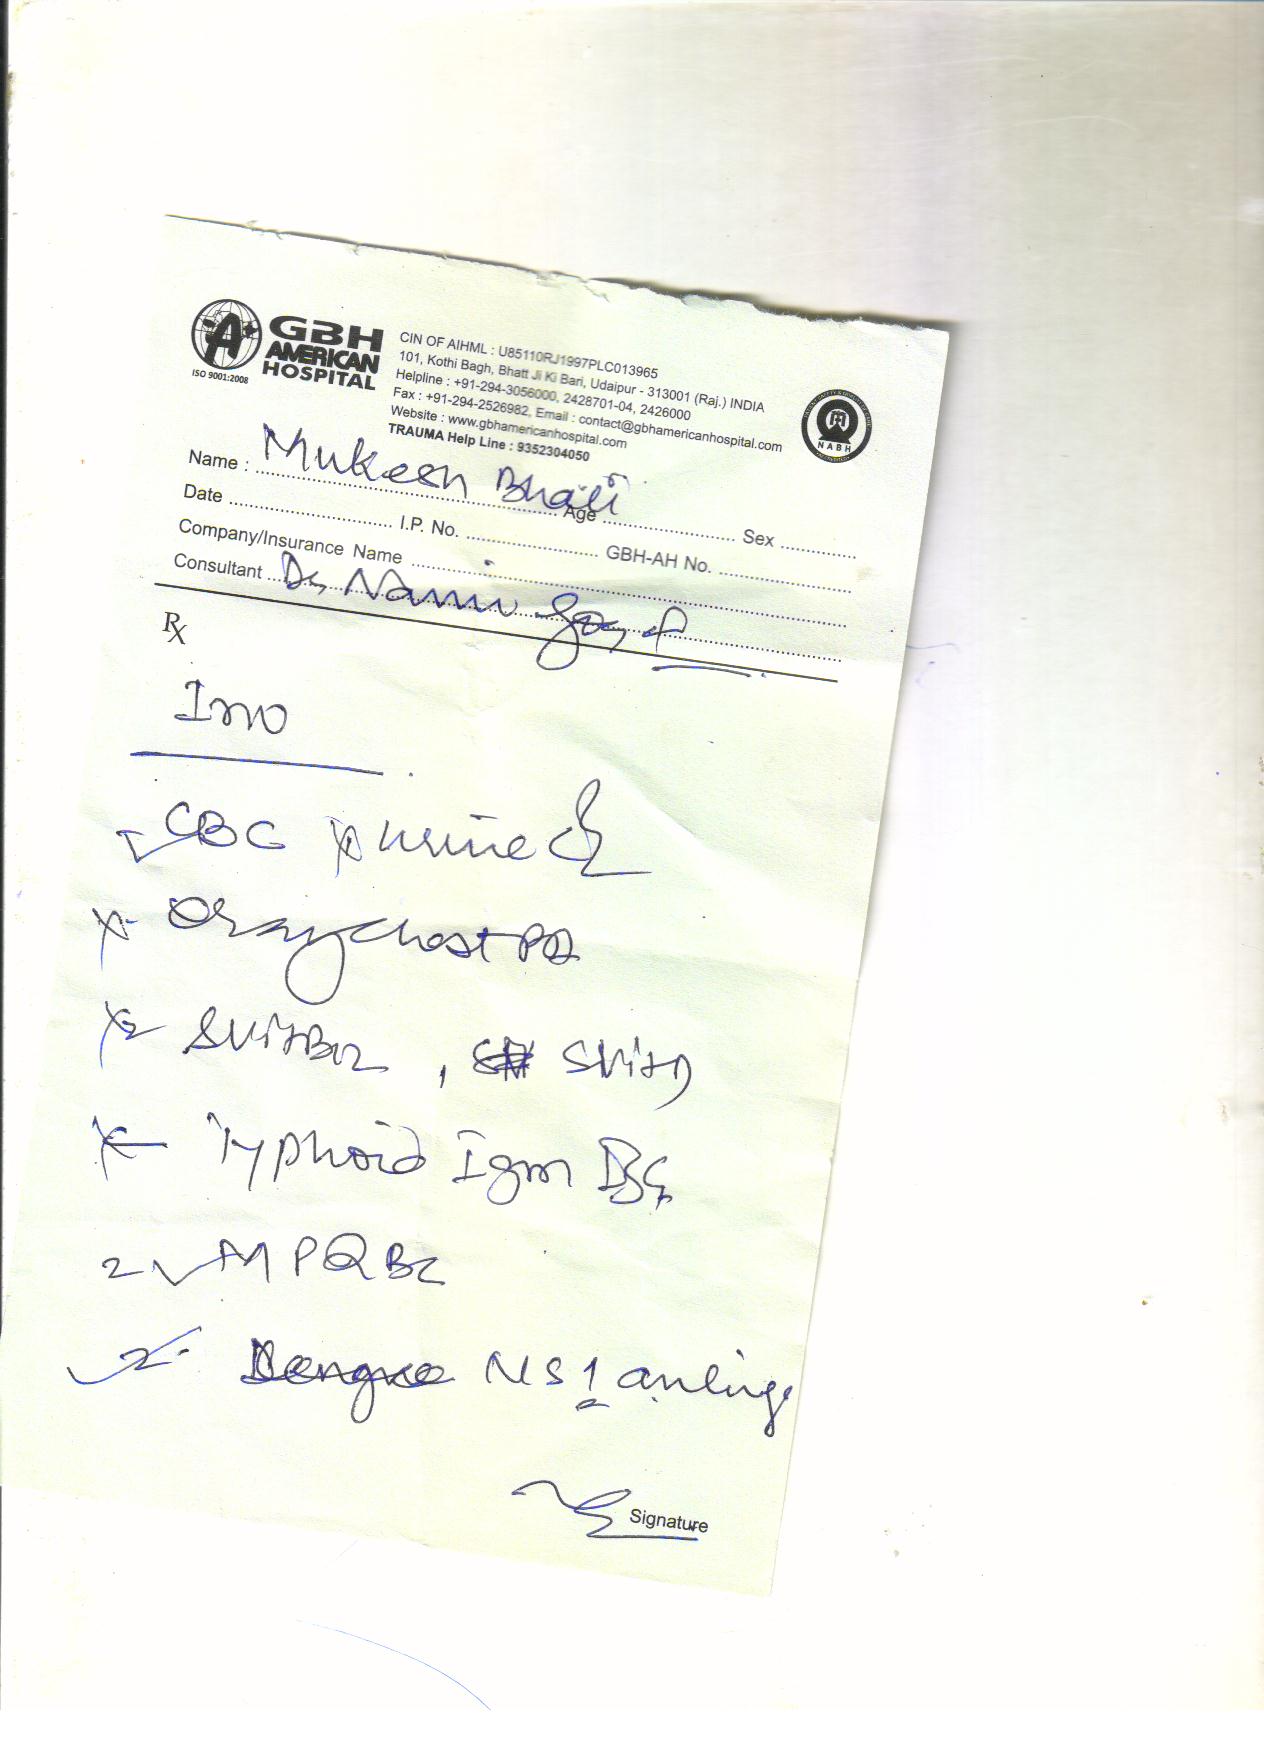 GBH
AMERICAN
HOSPITAL
ISO 9001:2008
CIN OF AIHML : U85110RJ1997PLC013965
101, Kothi Bagh, Bhatt Ji Ki Bari, Udaipur - 313001 (Raj.) INDIA
Helpline : +91-294-3056000, 2428701-04, 2426000
Fax : +91-294-2526982, Email : contact@gbhamericanhospital.com
Website : www.gbhamericanhospital.com
TRAUMA Help Line : 9352304050
NABH
Name : Mukesh Age Sex
Date I.P. No. GBH-AH No.
Company/Insurance Name
Consultant Dr
Rx
CBC urine
Xray chest PA
SVitB12, SVitD
Typhoid Igm
MPQBC
Dengue NS1
Signature